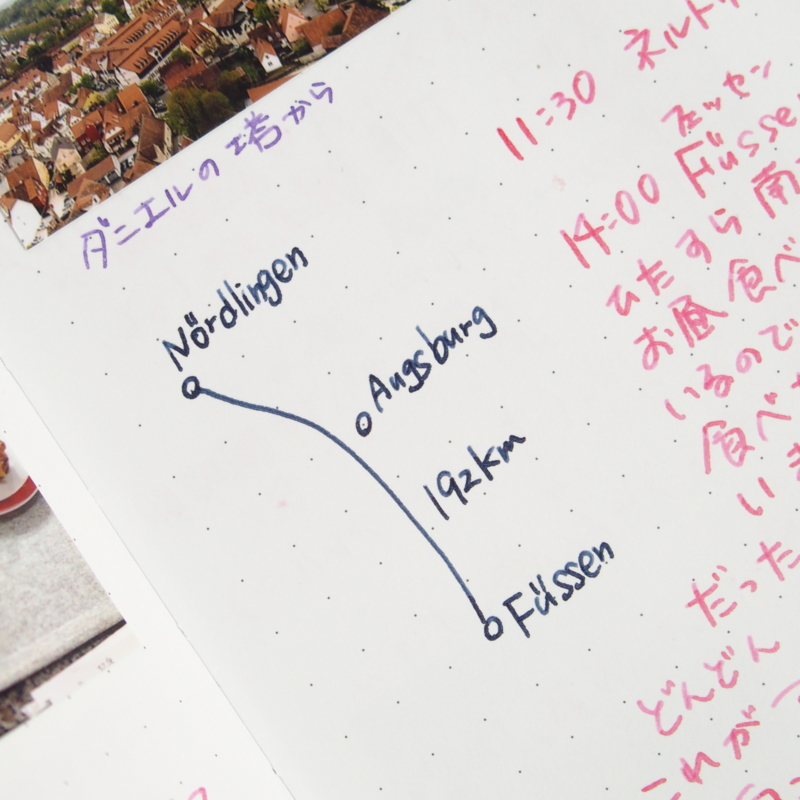 ダニエルの塔から
Nördlingen
Augsburg
192km
Füssen
11:30 ネルト
フュッセン
14:00 Füssen
ひたすら 南
お昼 食べ
いるので
食べ
い
だった
どんどん
これが